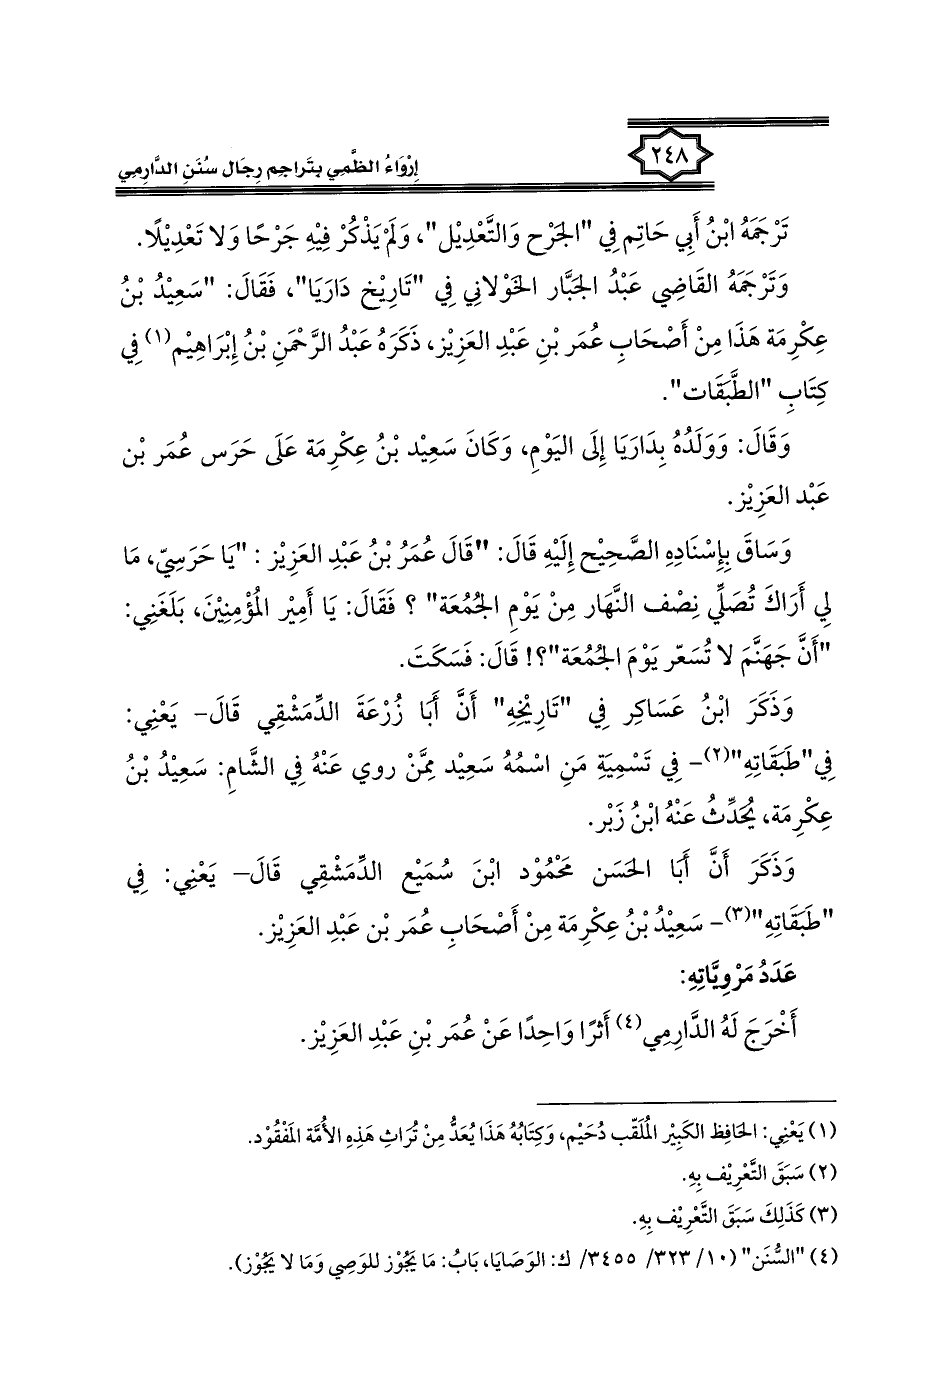 ٢٤٨
إِرْوَاءُ الظَّمِي بتَراجم رِجَال سُنَنِ الدَّارِمِي
تَرْجَمَهُ ابْنُ أَبِي حَاتِم فِي "الجَرْح وَالتَّعْدِيْل"، وَلَمْ يَذْكُرْ فِيْهِ جَرْحًا وَلا تَعْدِيْلًا.
وَتَرْجَمَهُ القَاضِي عَبْدُ الجَبَّار الخَوْلاني فِي "تَارِيْخ دَارَيَا"، فَقَالَ: "سَعِيْدُ بْنُ
عِكْرِمَة هَذَا مِنْ أَصْحَابِ عُمَر بْنِ عَبْدِ العَزِيْز، ذَكَرَهُ عَبْدُ الرَّحْمَنِ بْنُ إِبْرَاهِيْم(١) فِي
كِتَابِ "الطَّبَقَات".
وَقَالَ: وَوَلَدُهُ بِدَارَيَا إِلَى اليَوْمِ، وَكَانَ سَعِيْد بْنُ عِكْرِمَة عَلَى حَرَس عُمَر بْن
عَبْد العَزِيْز.
وَسَاقَ بِإِسْنَادِهِ الصَّحِيْح إِلَيْهِ قَالَ: "قَالَ عُمَرُ بْنُ عَبْدِ العَزِيْز : "يَا حَرَسِيّ، مَا
لِي أَرَاكَ تُصَلِّي نِصْف النَّهَار مِنْ يَوْمِ الجُمُعَة" ؟ فَقَالَ: يَا أَمِيْر المُؤْمِنِيْنَ، بَلَغَنِي:
"أَنَّ جَهَنَّمَ لا تُسَعّر يَوْمَ الجُمُعَة"؟! قَالَ: فَسَكَتَ.
وَذَكَرَ ابْنُ عَسَاكِر فِي "تَارِيْخِهِ" أَنَّ أَبَا زُرْعَةَ الدِّمَشْقِي قَالَ- يَعْنِي:
فِي"طَبَقَاتِهِ"(٢)- فِي تَسْمِيَةِ مَنِ اسْمُهُ سَعِيْد مِمَّنْ روي عَنْهُ فِي الشَّامِ: سَعِيْدُ بْنُ
عِكْرِمَة، يُحَدِّثُ عَنْهُ ابْنُ زَبْر.
وَذَكَرَ أَنَّ أَبَا الحَسَن مَحْمُوْد ابْنَ سُمَيْع الدِّمَشْقِي قَالَ– يَعْنِي: فِي
"طَبَقَاتِهِ"(٣)- سَعِيْدُ بْنُ عِكْرِمَة مِنْ أَصْحَابِ عُمَر بْن عَبْدِ العَزِيْز.
عَدَدُ مَرْوِيَّاتِهِ:
أَخْرَجَ لَهُ الدَّارِمِي(٤) أَثرًا وَاحِدًا عَنْ عُمَر بْنِ عَبْدِ العَزِيْز.
(١) يَعْنِي: الحَافِظ الكَبِيْر المُلَقّب دُحَيْم، وَكِتَابُهُ هَذَا يُعَدُّ مِنْ تُرَاثِ هَذِهِ الأُمَّة المَفْقُوْد.
(٢) سَبَقَ التَّعْرِيْف بِهِ.
(٣) كَذَلِكَ سَبَقَ التَّعْرِيْف بِهِ.
(٤) "السُّنَن" (١٠/ ٣٢٣/ ٣٤٥٥/ ك: الوَصَايا، بَابُ: مَا يَجُوْز للوَصِي وَمَا لا يَجُوْز).